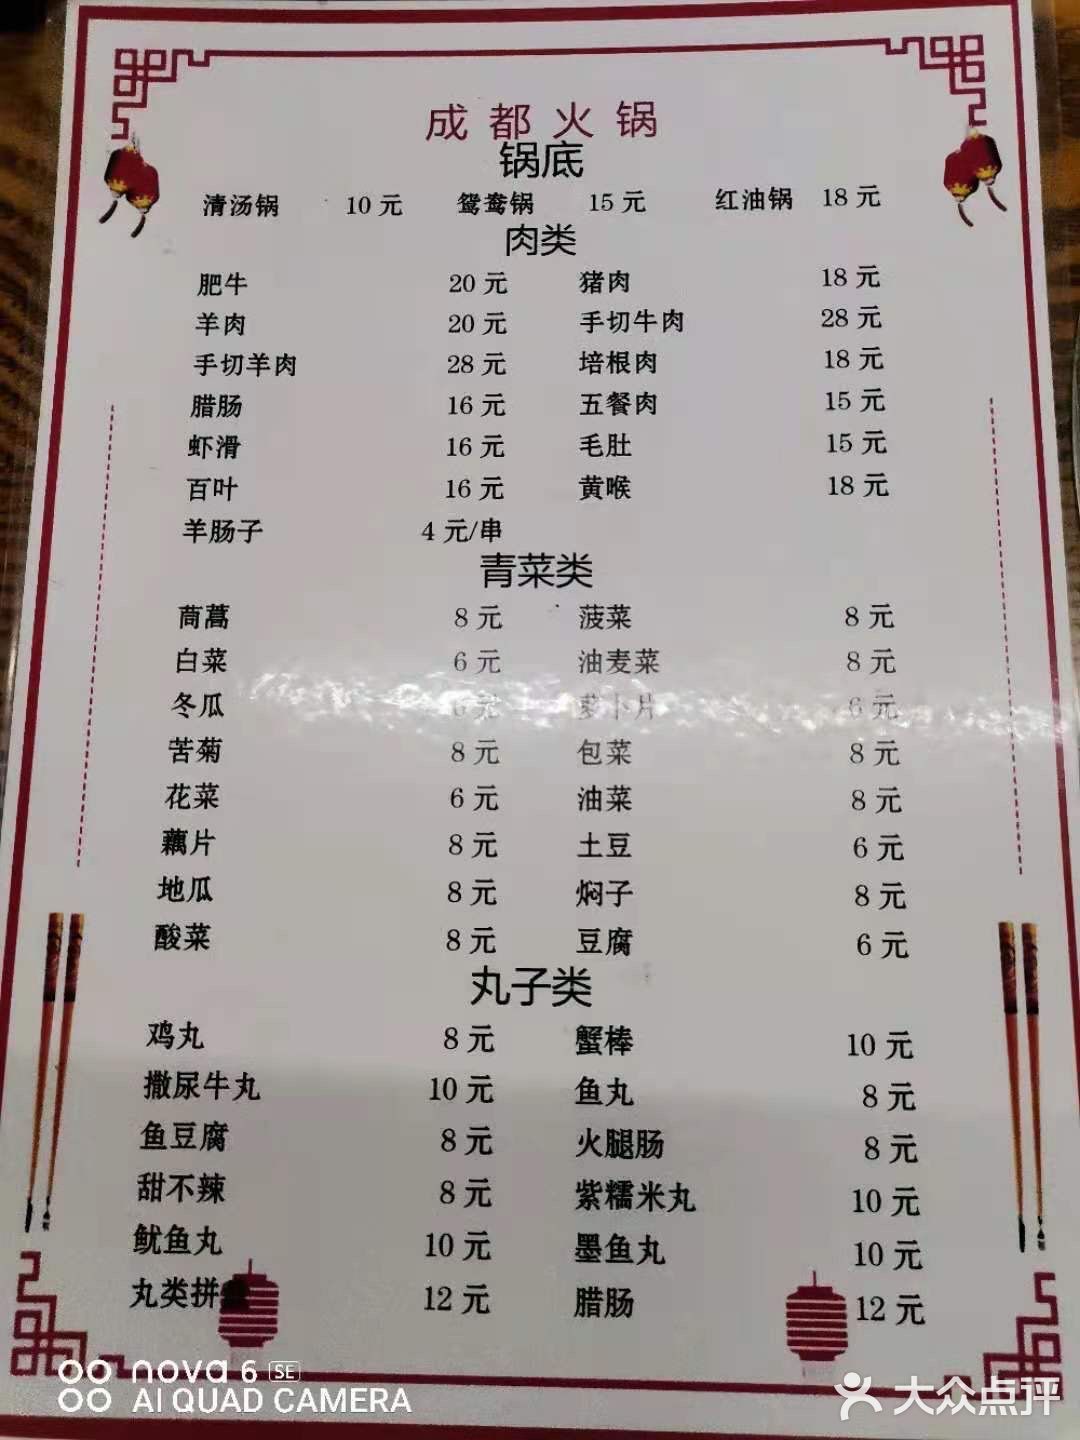 成都火锅
锅底
清汤锅 10元 鸳鸯锅 15元 红油锅 18元
肉类
肥牛 20元 猪肉 18元
羊肉 20元 手切牛肉 28元
手切羊肉 28元 培根肉 18元
腊肠 16元 五餐肉 15元
虾滑 16元 毛肚 15元
百叶 16元 黄喉 18元
羊肠子 4元/串
青菜类
茼蒿 8元 菠菜 8元
白菜 6元 油麦菜 8元
冬瓜 6元 萝卜片 6元
苦菊 8元 包菜 8元
花菜 6元 油菜 8元
藕片 8元 土豆 6元
地瓜 8元 焖子 8元
酸菜 8元 豆腐 6元
丸子类
鸡丸 8元 蟹棒 10元
撒尿牛丸 10元 鱼丸 8元
鱼豆腐 8元 火腿肠 8元
甜不辣 8元 紫糯米丸 10元
鱿鱼丸 10元 墨鱼丸 10元
丸类拼 12元 腊肠 12元
nova 6 SE
AI QUAD CAMERA
大众点评